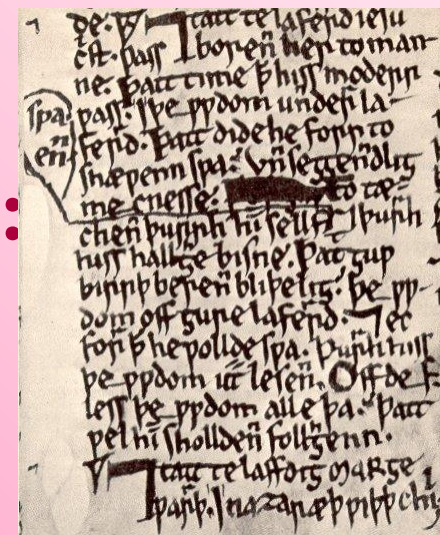 ȝe. ⁊ tatt te laferrd iesu
crist. ƿass borenn her to mann
ne. þatt time þ hiss moderr
ƿass. i þe ƿƿdom unnderr la
sƿa
enn
ferrd. þatt dide he forr to
shæƿenn sƿa. unnseggenndliȝ
me cnesse. to tæ
chenn þurrh himm sellf. ⁊ þurrh
hiss hallȝe bisne. þatt ȝuƿ
birrþ berenn bliþeliȝ. þe ƿƿ
dom off ȝure laferrd. ⁊ ec
forr þ he ƿollde sƿa. þurrh hiss
þe ƿƿdom ut lesenn. Off def
less þe ƿƿdom alle þa. þatt
ƿel himm sholldenn follȝenn.
⁊ tatt te laffdiȝ marȝe
ƿarrþ. I nazaræþ ƿiþþ chi